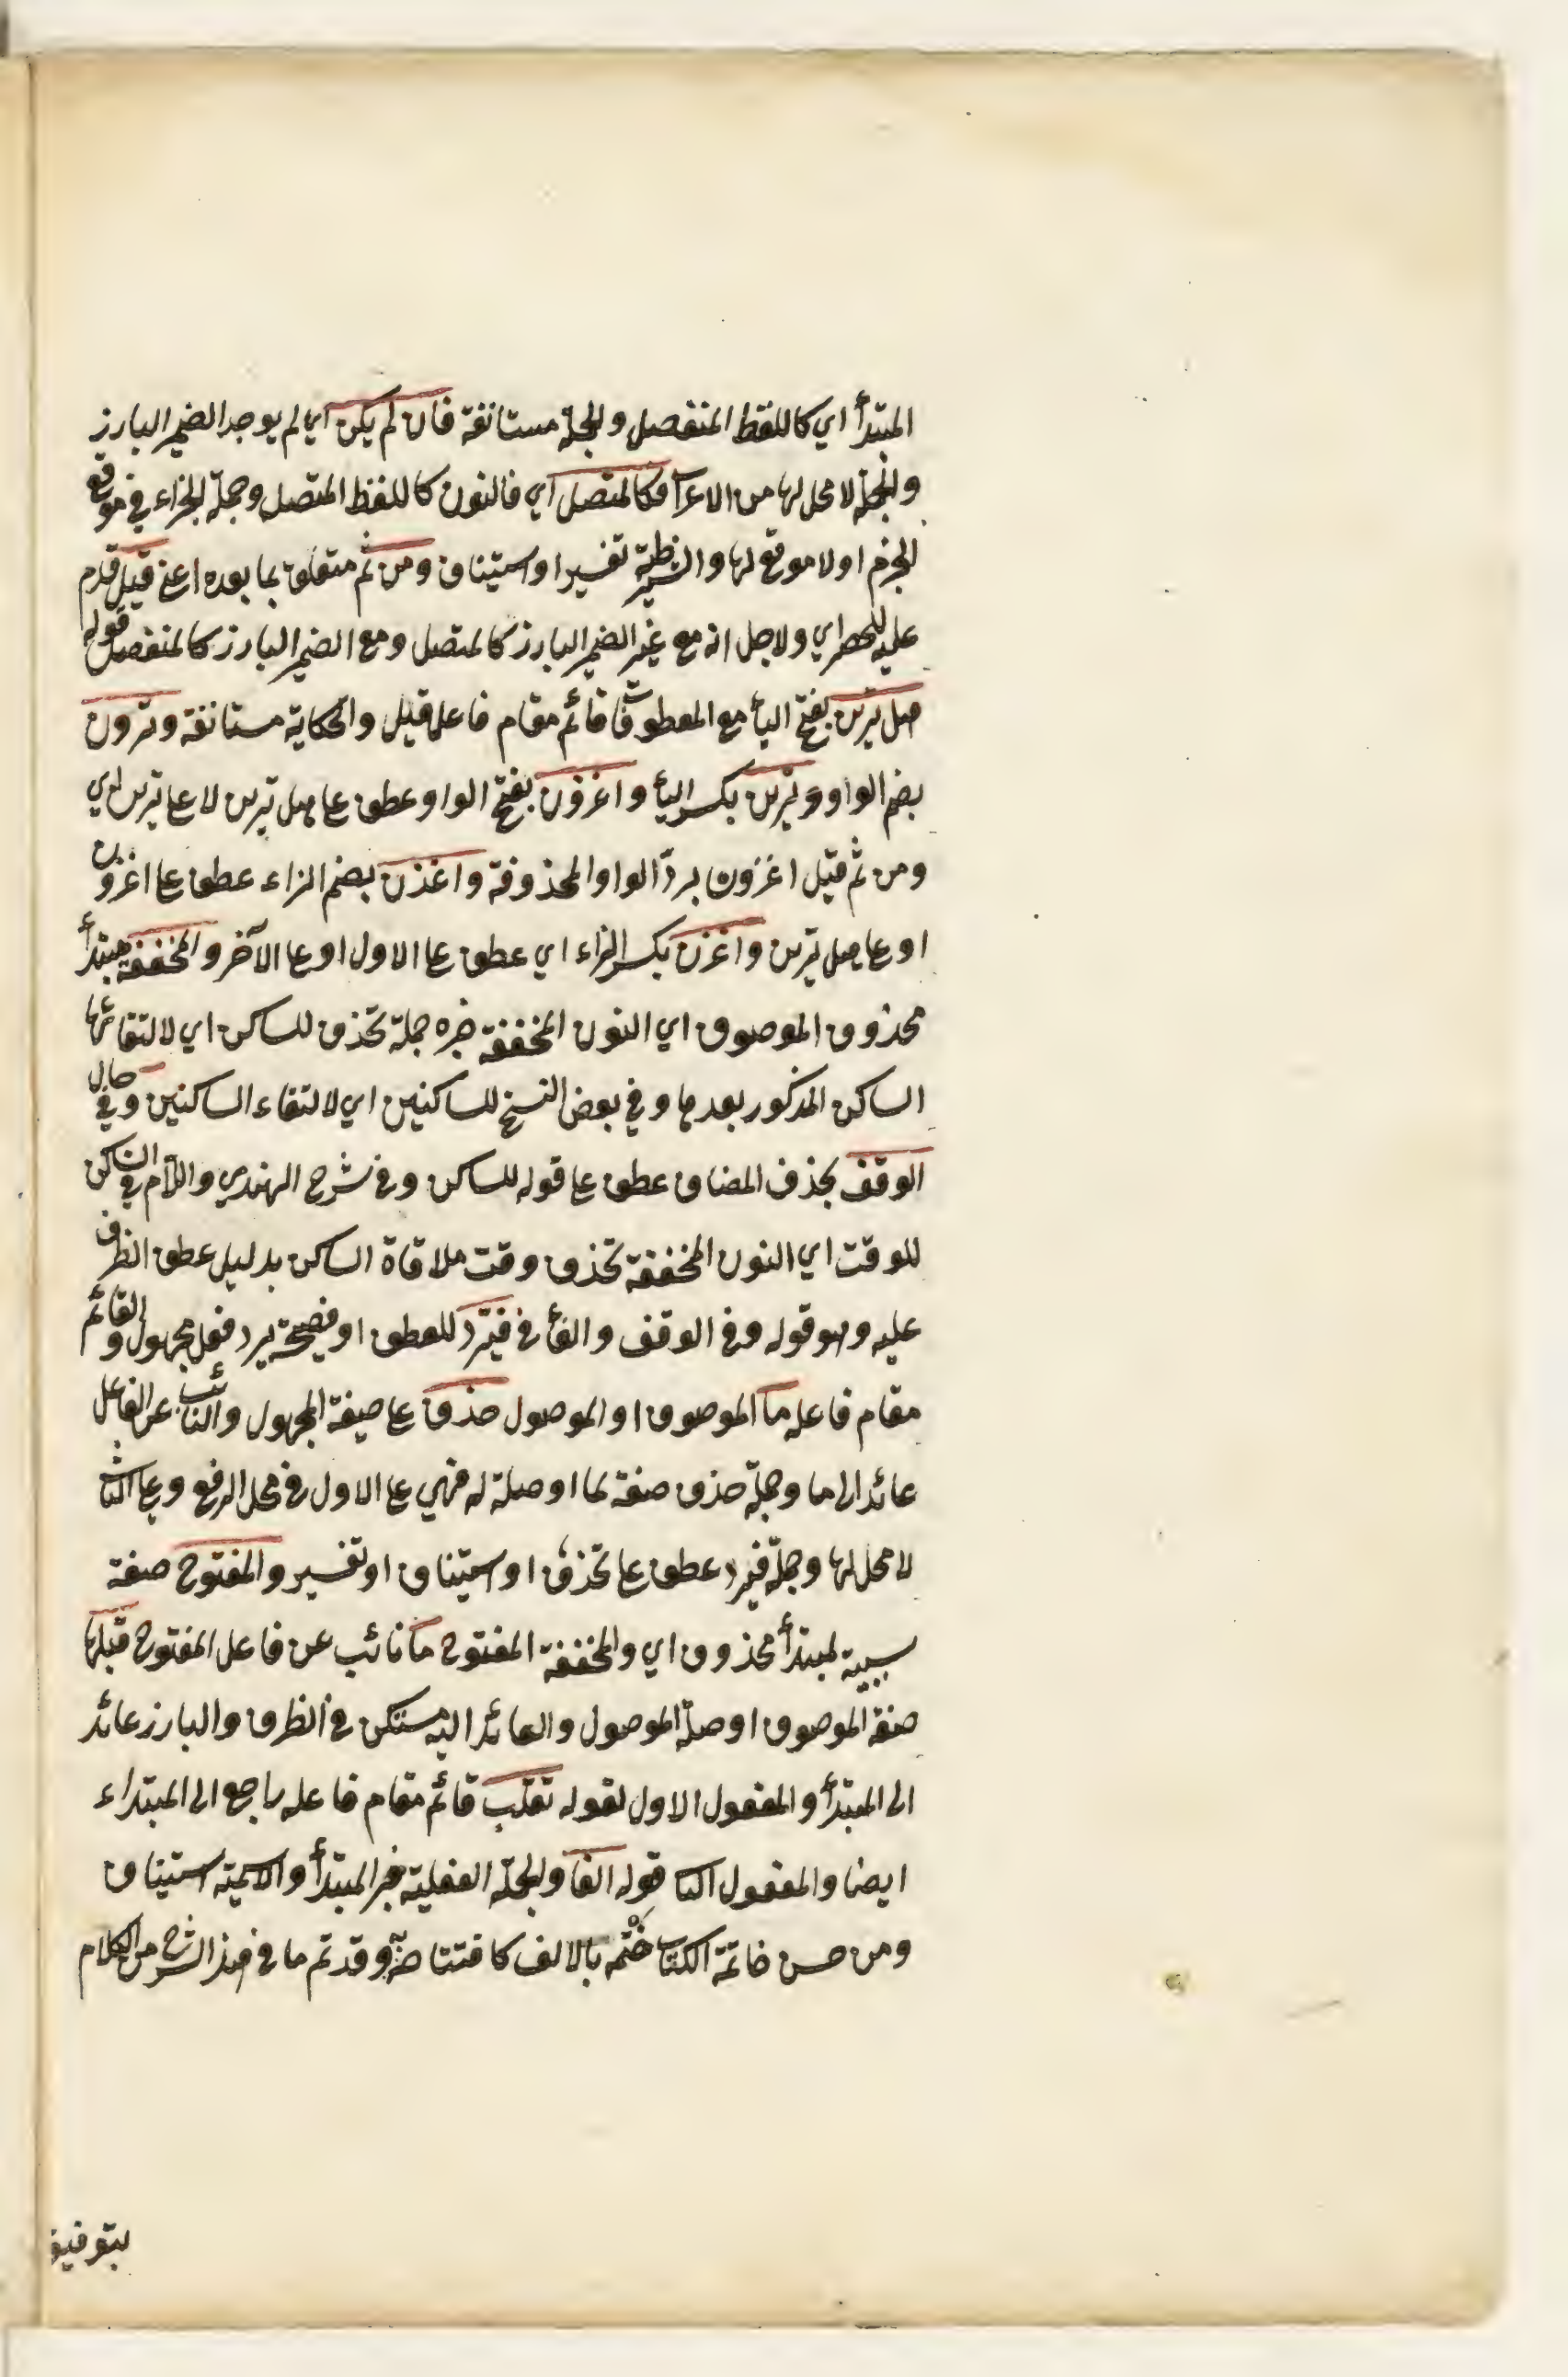 المبتدأ اي كاللفظ المنفصل والجملة مستانفة فان لم يكن اي لم يوجد الضمير البارز
والجملة لا محل لها من الاعرآ فكالمتصل اي فالنون كاللفظ المتصل وجملة الجزاء في موقع
الجزم او لا موقع لها والشرطية تفسير او استيناف ومن ثم متعلق بما بعده اعني قيل قدم
عليه للحصر اي ولاجل انه مع غير الضمير البارز كالمتصل ومع الضمير البارز كالمنفصل قوله
هل ترين بفتح اليأ مع المعطوفات قائم مقام فاعل قيل والحكاية مستانفة وترون
بضم الواو وترين بكسر اليأ واغزون بفتح الواو عطف عا هل ترين لا عا ترين اي
ومن ثم قيل اغزون بردّ الواو المحذوفة واغزن بضم الزاء عطف عا اغزون
او عا هل ترين واغزن بكسر الزاء اي عطف عا الاول او عا الآخر والمخففة مبتدأ
محذوف الموصوف اي النون المخففة خبره جملة تحذف للساكن اي لالتقائها
الساكن المذكور بعدها وفي بعض النسخ للساكنين اي لالتقاء الساكنين وفي حال
الوقف بحذف المضاف عطف عا قوله للساكن وفي شرح الهندي واللام في الساكن
للوقت اي النون المخففة تحذف وقت ملاقاة الساكن بدليل عطف الظرف
عليه وهو قوله وفي الوقف والفأ في فيردّ للعطف او فصيحة يرد فعل مجهول والقائم
مقام فاعله ما الموصوف او الموصول حذف عا صيغة المجهول والنائب عن الفاعل
عائد الى ما وجملة حذف صفة لما او صلة له فهي عا الاول في محل الرفع وعا الثا
لا محل لها وجملة فيرد عطف عا تحذف او استيناف او تفسير والمفتوح صفة
سببية لمبتدأ محذوف اي والمخففة المفتوح ما نائب عن فاعل المفتوح قبلها
صفة الموصوف او صلة الموصول والعائد اليه مستكن في الظرف والبارز عائد
الى المبتدأ والمفعول الاول لقوله تقلب قائم مقام فاعله راجع الى المبتداء
ايضا والمفعول الثا قوله الفا والجملة الفعلية خبر المبتدأ والاسمية استيناف
ومن حسن خاتمة الكتاب ختمه بالالف كافتتاحه وقد تم ما في هذا الشرح من الكلام
بتوفيق